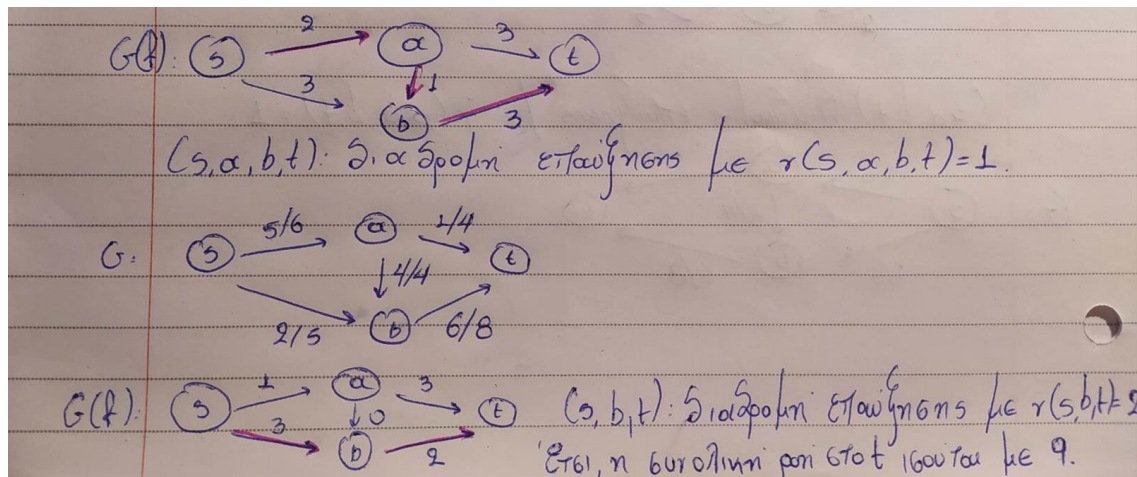 G(f): s 2 a 3 t
3 1
b 3
(s, a, b, t): διαδρομη επαύξησης με r(s, a, b, t)=1.
5/6 a 1/4
G: s t
4/4
2/5 b 6/8
1 a 3
G(f): s 0 t (s, b, t): διαδρομη επαύξησης με r(s, b, t)=2
3 b 2
Έτσι, η συνολικη ροη στο t ισούται με 9.